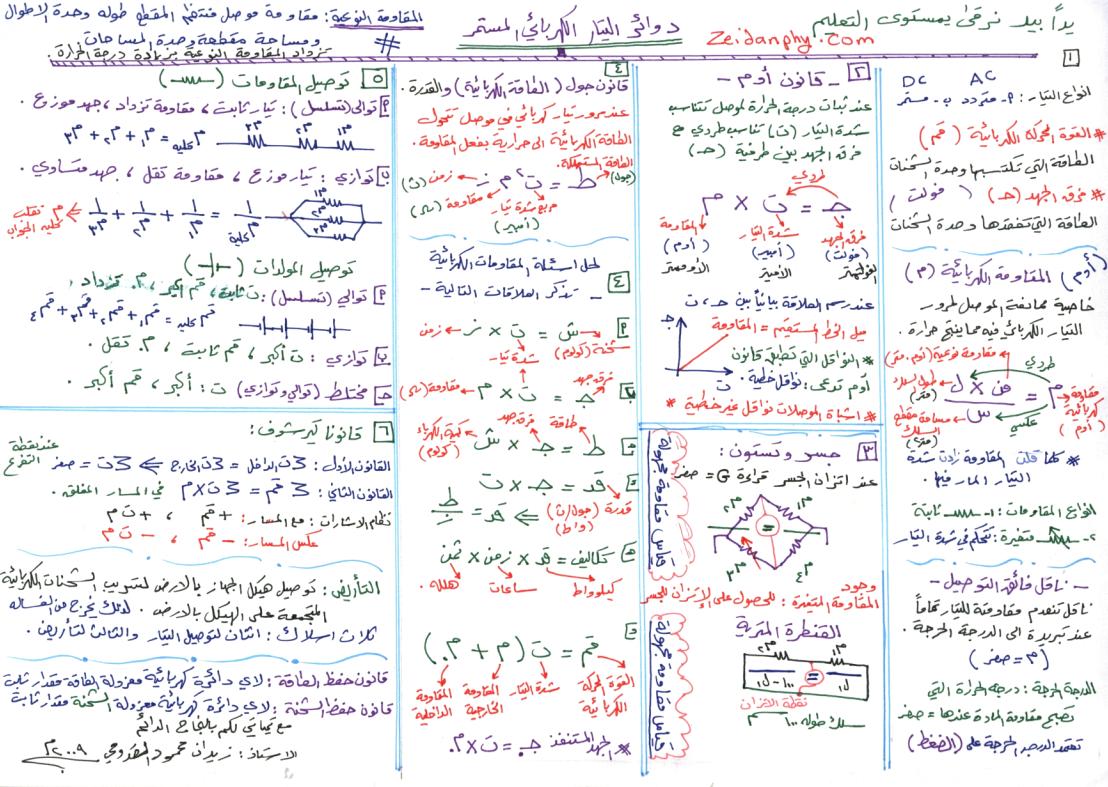 يداً بيد نرقى بمستوى التعليم
Zeidanphy.com
دوائر التيار الكهربائي المستمر
المقاومة النوعية: مقاومة موصل منتظم المقطع طوله وحدة الاطوال
ومساحة مقطعة وحدة المساحات #
تزداد المقاومة النوعية بزيادة درجة الحرارة
١
DC AC
انواع التيار: أ- متردد ب- مستمر
* القوة المحركة الكهربائية (قم)
الطاقة التي تكتسبها وحدة الشحنات
* فرق الجهد (جـ) (فولت)
الطاقة التي تفقدها وحدة الشحنات
المقاومة الكهربائية (م) (أوم)
خاصية ممانعة الموصل لمرور
التيار الكهربائي فيه مما ينتج حرارة.
طردي
مقاومة نوعية (أوم.متر)
م = من × ل / س
مقاومة كهربائية (أوم)
طول السلك (متر)
عكسي
مساحة مقطع السلك (متر٢)
* كلما قلت المقاومة زادت شدة
التيار المار فيها.
انواع المقاومات: ١- ثابتة
٢- متغيرة: تتحكم في شدة التيار
- ناقل فائق التوصيل -
ناقل تنعدم مقاومتة للتيار تماماً
عند تبريدة الى الدرجة الحرجة.
(م = صفر)
الدرجة الحرجة: درجة الحرارة التي
تصبح مقاومة المادة عندها = صفر
تعتمد الدرجة الحرجة على (الضغط)
٢ - قانون أوم -
عند ثبات درجة الحرارة لموصل تتناسب
شدة التيار (ت) تناسب طردي مع
فرق الجهد بين طرفية (جـ)
طردي
جـ = ت × م
فرق الجهد (فولت) الفولتميتر
شدة التيار (أمبير) الأميتر
المقاومة (أوم) الأوميتر
عند رسم العلاقة بيانياً بين جـ، ت
جـ
ت
ميل الخط المستقيم = المقاومة
* النواقل التي تنطبق قانون
أوم تدعى: نواقل خطية.
* اشباة الموصلات نواقل غير خطية *
٣ جسر وتستون:
عند اتزان الجسر قراءة G = صفر
م١ م٢
م٣ م٤
قياس مقاومة مجهولة
وجود
المقاومة المتغيرة: للحصول على الإتزان للجسر
القنطرة المترية
م١ م٢
ل١ ١٠٠-ل١
نقطة الاتزان
سلك طوله ١٠٠ سم
قياس مقاومة مجهولة
٤
قانون جول (الطاقة الكهربائية) والقدرة.
عند مرور تيار كهربائي في موصل تتحول
الطاقة الكهربائية الى حرارية بفعل المقاومة.
الطاقة المستهلكة
ط = ت٢ م ز
(جول)
زمن (ث)
مربع شدة تيار (أمبير)
مقاومة
لحل اسئلة المقاومات الكهربائية
٤ - تذكر العلاقات التالية -
أ ش = ت × ز
شحنة (كولوم)
شدة تيار
زمن
ب جـ = ت × م
فرق جهد
مقاومة
ج ط = جـ × ش
طاقة
فرق جهد
كمية الكهرباء (كولوم)
د قد = جـ × ت
قدرة (جول/ث) (واط)
⇐ قد = ط / ز
هـ تكاليف = قد × زمن × ثمن
كيلوواط
ساعات
هلله.
و قم = ت (م + م.)
القوة المحركة الكهربائية
شدة التيار
المقاومة الخارجية
المقاومة الداخلية
* الجهد المستنفذ جـ. = ت × م.
٥ توصيل المقاومات
أ توالي (تسلسل): تيار ثابت، مقاومة تزداد، جهد موزع.
م١ م٢ م٣
م كلية = م١ + م٢ + م٣
ب توازي: تيار موزع، مقاومة تقل، جهد متساوي.
م١
م٢
م٣
١/م كلية = ١/م١ + ١/م٢ + ١/م٣ ⇐ م كلية نقلب الجواب
توصيل المولدات
أ توالي (تسلسل): ت ثابت، قم أكبر، م. تزداد،
قم كلية = قم١ + قم٢ + قم٣ + قم٤
ب توازي: ت أكبر، قم ثابت، م. تقل.
ج مختلط (توالي وتوازي) ت: أكبر، قم أكبر.
٦ قانونا كيرشوف:
القانون الأول: Σت الداخل = Σت الخارج ⇐ Σت = صفر عند نقطة التفرع
القانون الثاني: Σقم = Σت×م في المسار المغلق.
نظام الاشارات: مع المسار: + قم ، + ت م
عكس المسار: - قم ، - ت م
التأريض: توصيل هيكل الجهاز بالارض لتسريب الشحنات الكهربائية
المتجمعة على الهيكل بالارض. لذلك يخرج من الغسالة
ثلاث اسلاك: اثنان لتوصيل التيار والثالث لتأريض.
قانون حفظ الطاقة: لاي دائرة كهربائية معزولة الطاقة مقدار ثابت
قانون حفظ الشحنة: لاي دائرة كهربائية معزولة الشحنة مقدار ثابت
مع تمنياتي لكم بالنجاح الدائم
الاستاذ: زيدان محمود ٢٠٠٩م